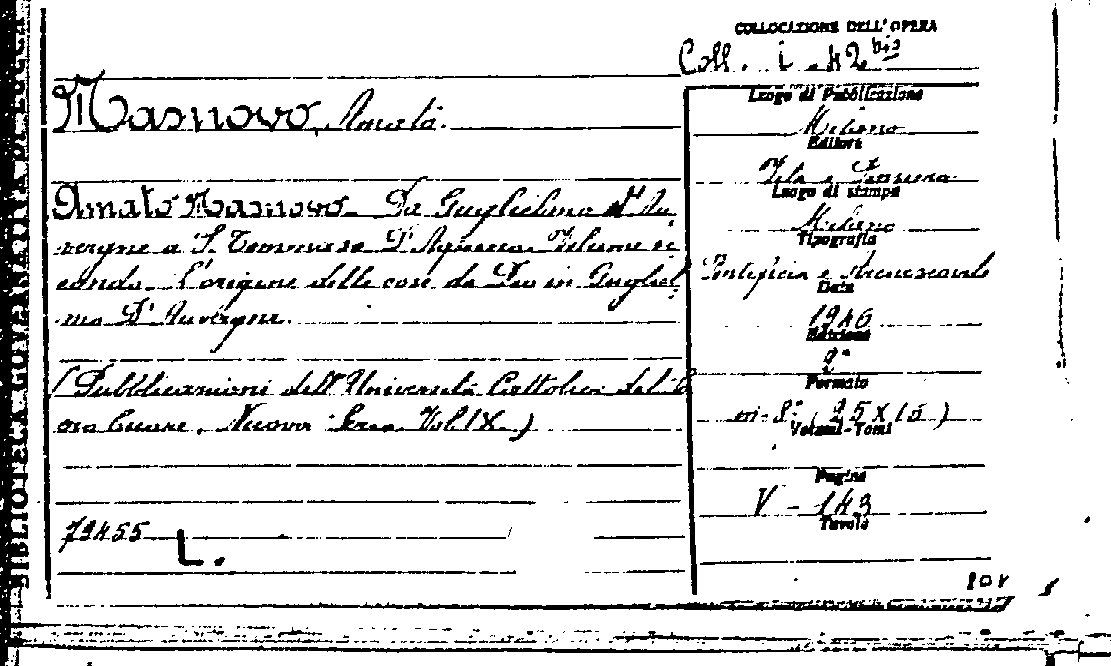 BIBLIOTECA GOVERNATIVA DI LUCCA
COLLOCAZIONE DELL'OPERA
Coll. i - 42 bis
Masnovo, Amato.
Amato Masnovo - Da Guglielmo d'Au-
vergne a S. Tommaso D'Aquino. Volume se
condo. L'origine delle cose da Dio in Gugliel-
mo D'Auvergne.
(Pubblicazioni dell'Università Cattolica del
Cuore. Nuova Serie. Vol. IX.)
73455 L.
Luogo di Pubblicazione
Milano
Editore
Vita e Pensiero
Luogo di stampa
Milano
Tipografia
Pontificia e Arcivescovile
Data
1946
Edizione
2ª
Formato
in-8° (25 X 15)
Volumi-Tomi
Pagine
V - 143
Tavole